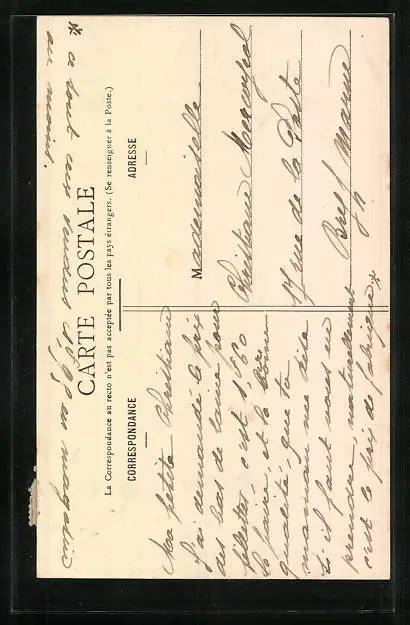 * a tout cas vendus 1f95 en magasin
au moins.
CARTE POSTALE
La Correspondance au recto n'est pas acceptée par tous les pays étrangers. (Se renseigner à la Poste.)
CORRESPONDANCE
Ma petite Christiane
J'ai demandé le prix
des bas de laine pour
fillettes c'est 1,60
la paire, et la bonne
qualité, que ta
maman me dise
s'il faut vous en
prendre, naturellement
c'est le prix de fabrique *
ADRESSE
Mademoiselle
Christiane
17 rue de la Porte
Brest